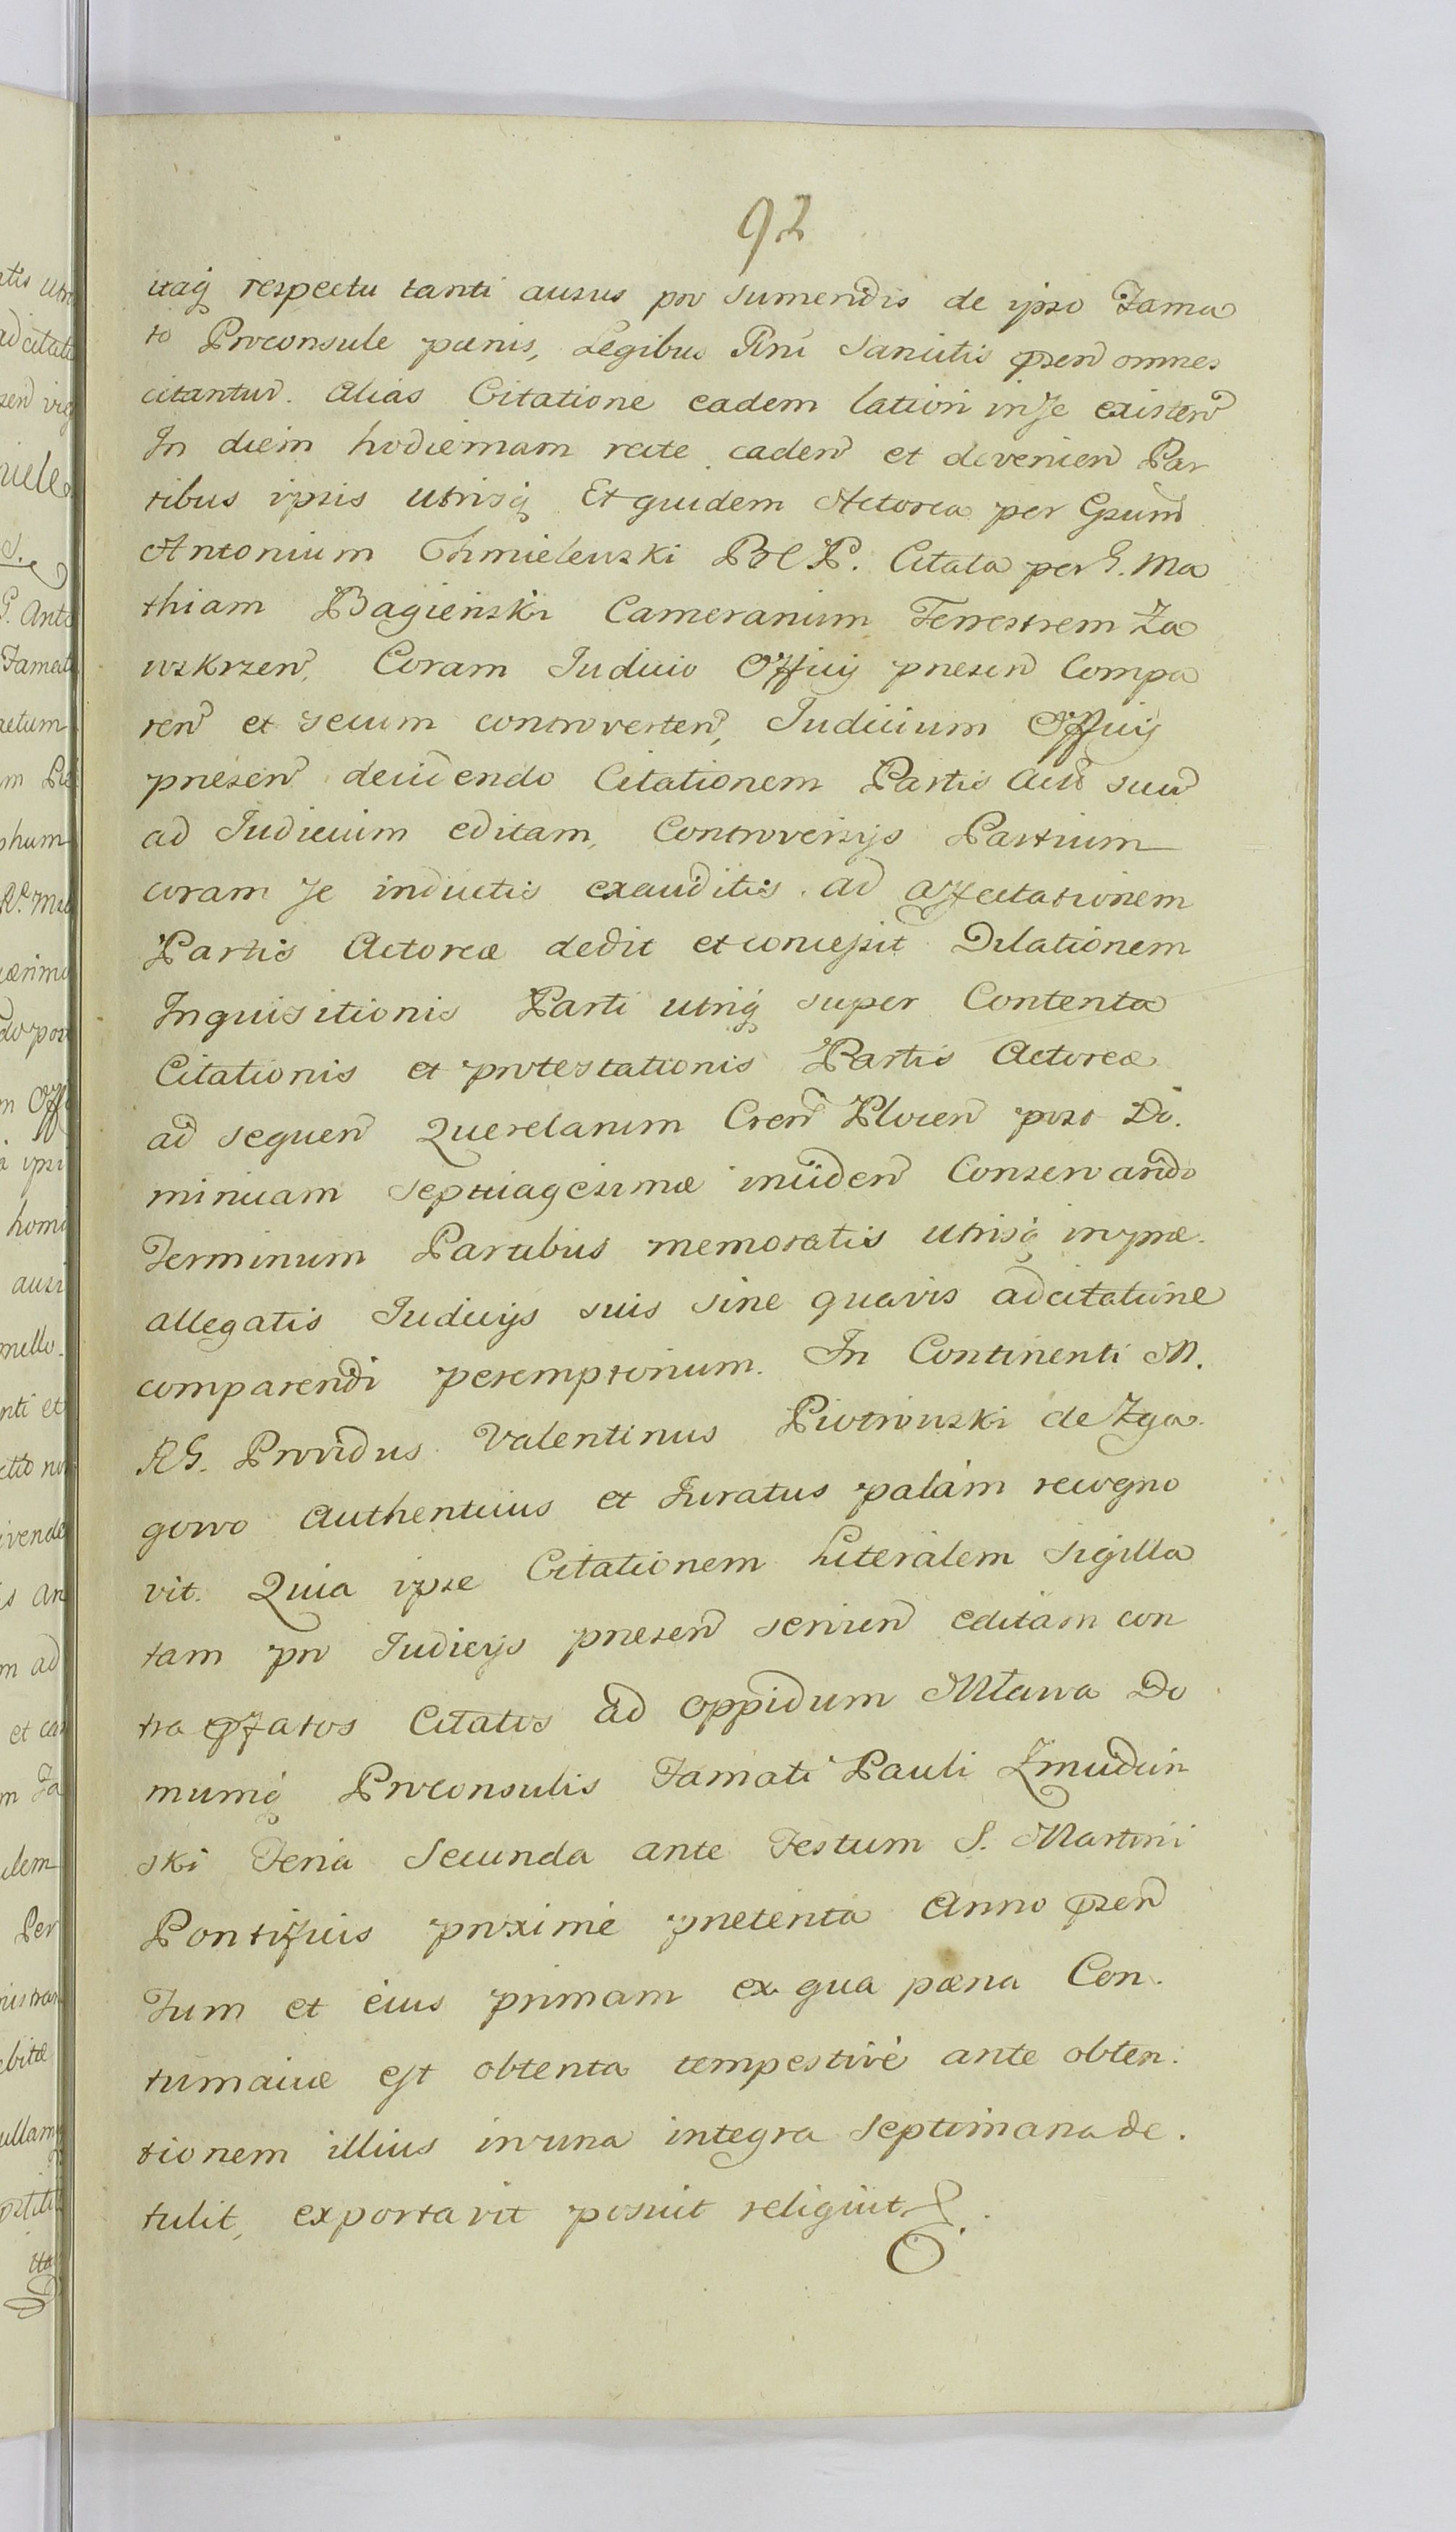 92
itaq̃ respectu tanti ausus pro sumendis de ipso Fama
to Proconsule pænis, Legibus Rñi Sancitis p̃sen̄ omnes
citantur. Alias Citatione eadem latiori in se existen̄
In diem hodiernam recte caden̄ et devenien̄ Par
tibus ipsis utrisq̃ Et quidem Actorea per Gsum
Antonium Chmielewski B C P. Citata per G. Ma
thiam Bagieński Camerarium Terrestrem Za
wskrzen̄, Coram Iudicio Officij presen̄ Compa
ren̄ et secum controverten̄, Iudicium Officij
presen̄ decidendo Citationem Partis Act̄ suu̅
ad Iudicium editam, Controversijs Partium
coram se inductis exauditis. ad affectationem
Partis Actoreæ dedit et concessit Dilationem
Inquisitionis Parti utriq̃ super Contenta
Citationis et protestationis Partis Actoreæ
ad sequen̄ Querelarum Cren̄ Plocen̄ post Do.
minicam Septuagesimæ inciden̄ Conservando
Terminum Partibus memoratis utrisq̃ in præ.
allegatis Iudicijs suis sine quavis adcitatione
comparendi peremptorium. In Continenti M.
RG. Providus Valentinus Piotrowski de Zga
gowo Authenticus et Iuratus palàm recogno
vit. Quia ipse Citationem Literalem sigilla
tam pro Iudicijs presen̄ servien̄ editam con
tra p̃fatos Citatos ad Oppidum Mława Do
mumq̃ Proconsulis Famati Pauli Zmudzin
ski Feria Secunda ante Festum S. Martini
Pontificis proximè preterita Anno p̃sen̄
Tum et eius primam ex qua pæna Con.
tumaciæ est obtenta tempestivè ante obten.
tionem illius in una integra Septimana de.
tulit, exportavit posuit reliquit